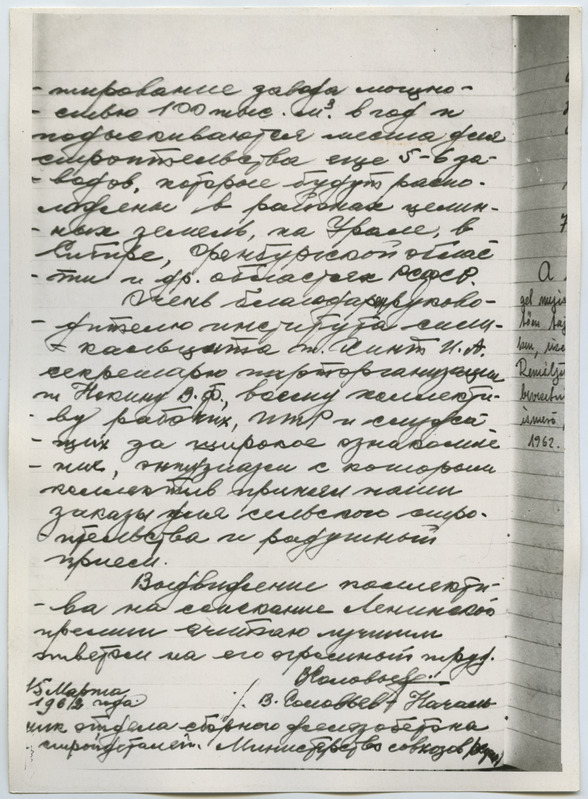 - тирование завода мощно-
- стью 100 тыс. м³. в год и
подыскиваются места для
строительства еще 5-6 за-
- водов, которые будут распо-
ложены в районах целин-
- ных земель, на Урале, в
Сибире, Оренбургской облас
- ти и др. областях РСФСР.
Очень благодарю руково-
- дителю института сили-
- кальцита т. Хинт И.А.
секретарю парторганизации
т. В.Ф, всему коллекти-
- ву рабочих, ИТР и служа
- щих за широкое ознакомле
- ние, энтузиазм с которым
коллектив принял наши
заказы для сельского стро-
ительства и радушный
прием.
Выдвижение коллекти-
- ва на соискание Ленинской
премии считаю лучшим
ответом на его огромный труд.
15 Марта
1961 года
/. В. Соловьев - Началь
ник отдела сборного железобетона
стройдеталей. Министерство совхозов
A
1962.